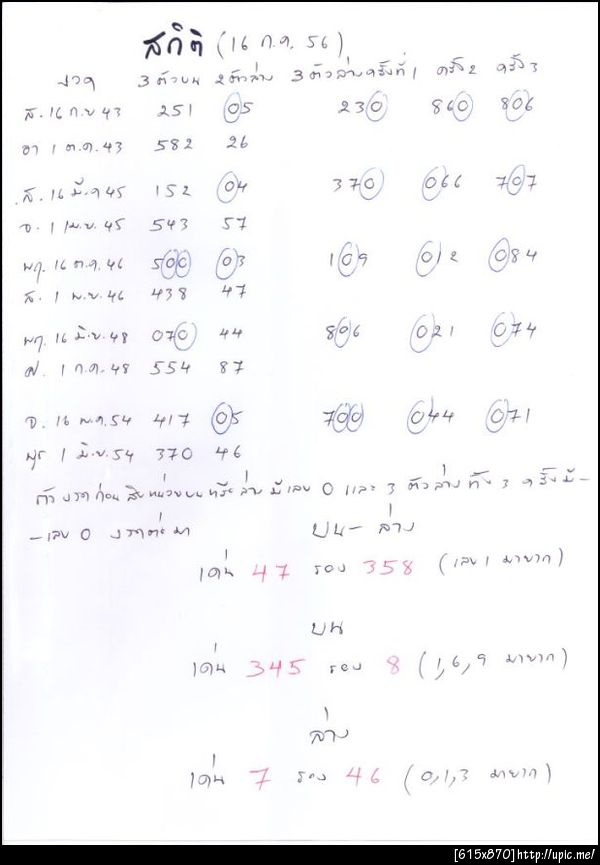 สถิติ (16 ก.ค. 56)
งวด 3 ตัวบน 2 ตัวล่าง 3 ตัวล่างครั้งที่ 1 ครั้ง 2 ครั้ง 3
ส. 16 ก.ย 43 251 05 230 860 806
อา 1 ต.ค. 43 582 26
ส. 16 มี.ค 45 152 04 370 066 707
จ. 1 เม.ย. 45 543 57
พฤ. 16 ต.ค. 46 500 03 109 012 084
ส. 1 พ.ย. 46 438 47
พฤ. 16 มิ.ย. 48 070 44 806 021 074
ศ. 1 ก.ค. 48 554 87
จ. 16 พ.ค. 54 417 05 700 044 071
พุธ 1 มิ.ย. 54 370 46
ถ้างวดก่อน สิบหน่วยบนหรือล่าง มีเลข 0 และ 3 ตัวล่างทั้ง 3 ครั้งมี -
- เลข 0 งวดต่อมา
บน - ล่าง
เด่น 47 รอง 358 (เลข 1 มายาก)
บน
เด่น 345 รอง 8 (1,6,9 มายาก)
ล่าง
เด่น 7 รอง 46 (0,1,3 มายาก)
[615x870]http://upic.me/